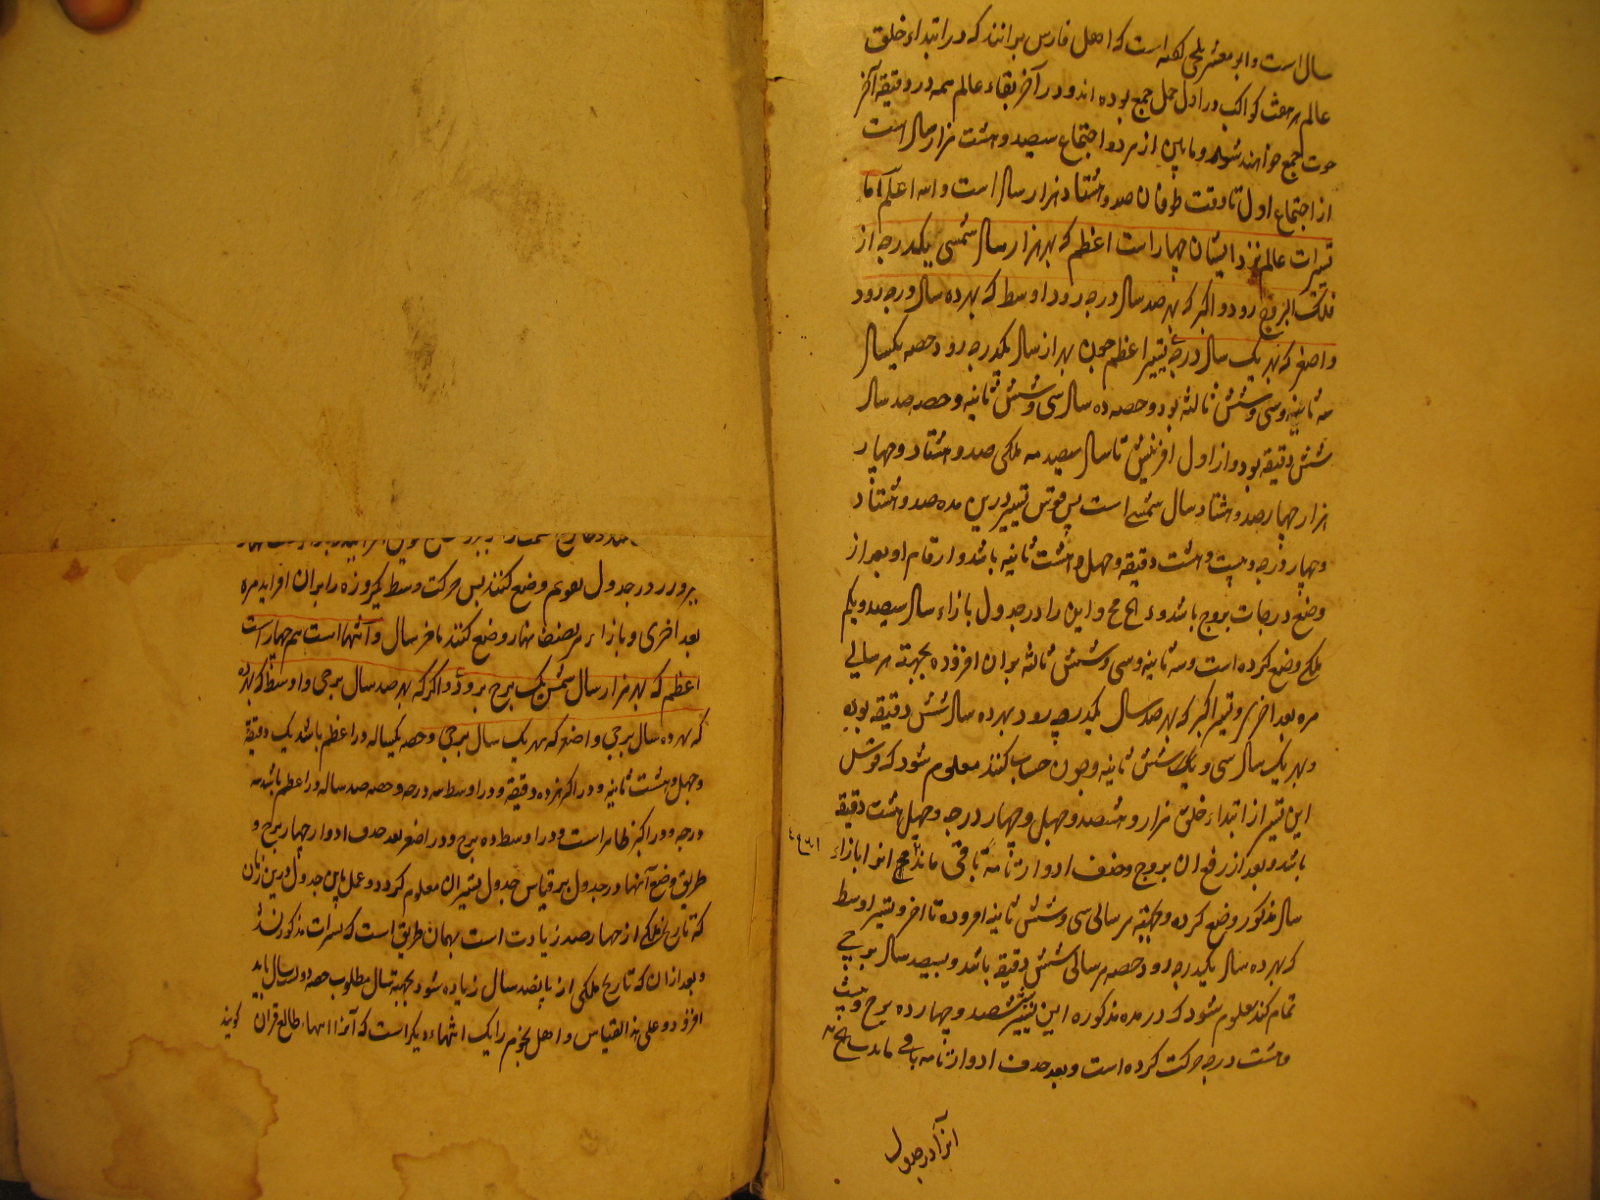 سال است و ابو معشر بلخی گفته است که اهل فارس برانند که در ابتداء خلق
عالم هر هفت کواکب در اول حمل جمع بوده اند و در آخر بقاء عالم همه در دقیقه آخر
حوت جمع خواهند شد و ما بین از هر دو اجتماع سیصد و هشت هزار سال است
از اجتماع اول تا وقت طوفان صد و هشتاد هزار سال است و الله اعلم اما
تسیرات عالم نزد ایشان چهار است اعظم که بهر هزار سال شمسی یکدرجه از
فلک البروج رود و اکبر که بهر صد سال درجه رود اوسط که بهر ده سال درجه رود
و اصغر که بهر یک سال درجه تسییر اعظم چون بهزار سال یکدرجه رود حصه یکسال
سه ثانیه و سی و شش ثالثه بود و حصه ده سال سی و شش ثانیه و حصه صد سال
شش دقیقه بود و از اول افرینش تا سال سیصد مه ملکی صد و هشتاد و چهار
هزار چهار صد و هشتاد سال شمسی است پس قوس تسییر درین مده صد و هشتاد
و چهار درجه و بیست و هشت دقیقه و چهل و هشت ثانیه باشد و ارقام او بعد از
وضع درجات بروج باشد و این را در جدول بازاء سال سیصد و یکم
ملکی وضع کرده است و سه ثانیه و سی و شش ثالثه بران افزوده بجهته هر سالی
مره بعد اخری و تسییر اکبر که بهر صد سال یکدرجه رود بهر ده سال شش دقیقه بود
و بهر یک سال سی و شش ثانیه و چون حساب کنند معلوم شود که قوسش
این تسییر از ابتداء خلق هزار و هشتصد و چهل و چهار درجه و چهل هشت دقیقه
باشد و بعد از رفع ان بروج و حذف ادوار تامه باقی ماند انرا بازاء
سال مذکور وضع کرده و بجهته هر سالی سی و شش ثانیه افزوده تا اخر و تسییر اوسط
که بهر ده سال یکدرجه رود حصه هر سالی شش دقیقه باشد و بسیصد سال برجی
تمام کند معلوم شود که در مده مذکوره این تسییر ششصد و چهارده برج و بیست
و هشت درجه حرکت کرده است و بعد حذف ادوار تامه باقی ماند
انرا در جدول
در جدول تقویم وضع کنند پس حرکت وسط یکروزه را بران افزاید مره
بعد اخری و بازاء هر نصف نهار وضع کنند تا خر سال و انتهاآت هم چهار است
اعظم که بهر هزار سال شمسی یک برج برود و اکبر که بهر صد سال برجی و اوسط که بهر ده
که بهر ده سال برجی و اصغر که بهر یک سال برجی و حصه یکساله در اعظم باشد یک دقیقه
و چهل و هشت ثانیه و در اکبر هژده دقیقه و در اوسط سه درجه و حصه صد ساله در اعظم باشد سه
درجه و در اکبر ظاهر است و در اوسط ده برج و در اصغر بعد حذف ادوار چهار برج و
طریق وضع آنها در جدول بر قیاس جدول تسییران معلوم گردد و عمل باین جدول درین زمان
که تاریخ ملکی از چهار صد زیادت است بهمان طریق است که تسیرات مذکور شد
و بعد از ان که تاریخ ملکی از پانصد سال زیاده شود بجهته سال مطلوب حصه دو سال باید
افزود و علی هذا القیاس و اهل نجوم را یک انتهاء دیگر است که آنرا انتهاء طالع قران گویند